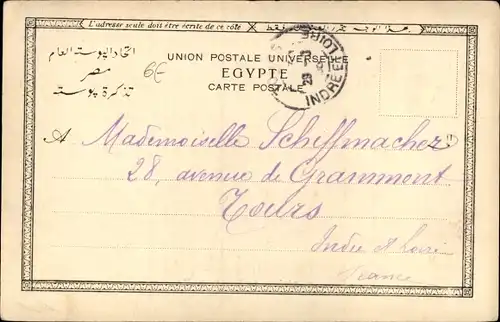 L'adresse seule doit être écrite de ce côté
UNION POSTALE UNIVERSELLE
EGYPTE
CARTE POSTALE
اتحاد البوستة العام
مصر
تذكرة بوستة
6E
INDRE ET LOIRE
23
A Mademoiselle Schiffmacher
28, avenue de Grammont
Tours
Indre et Loire
France